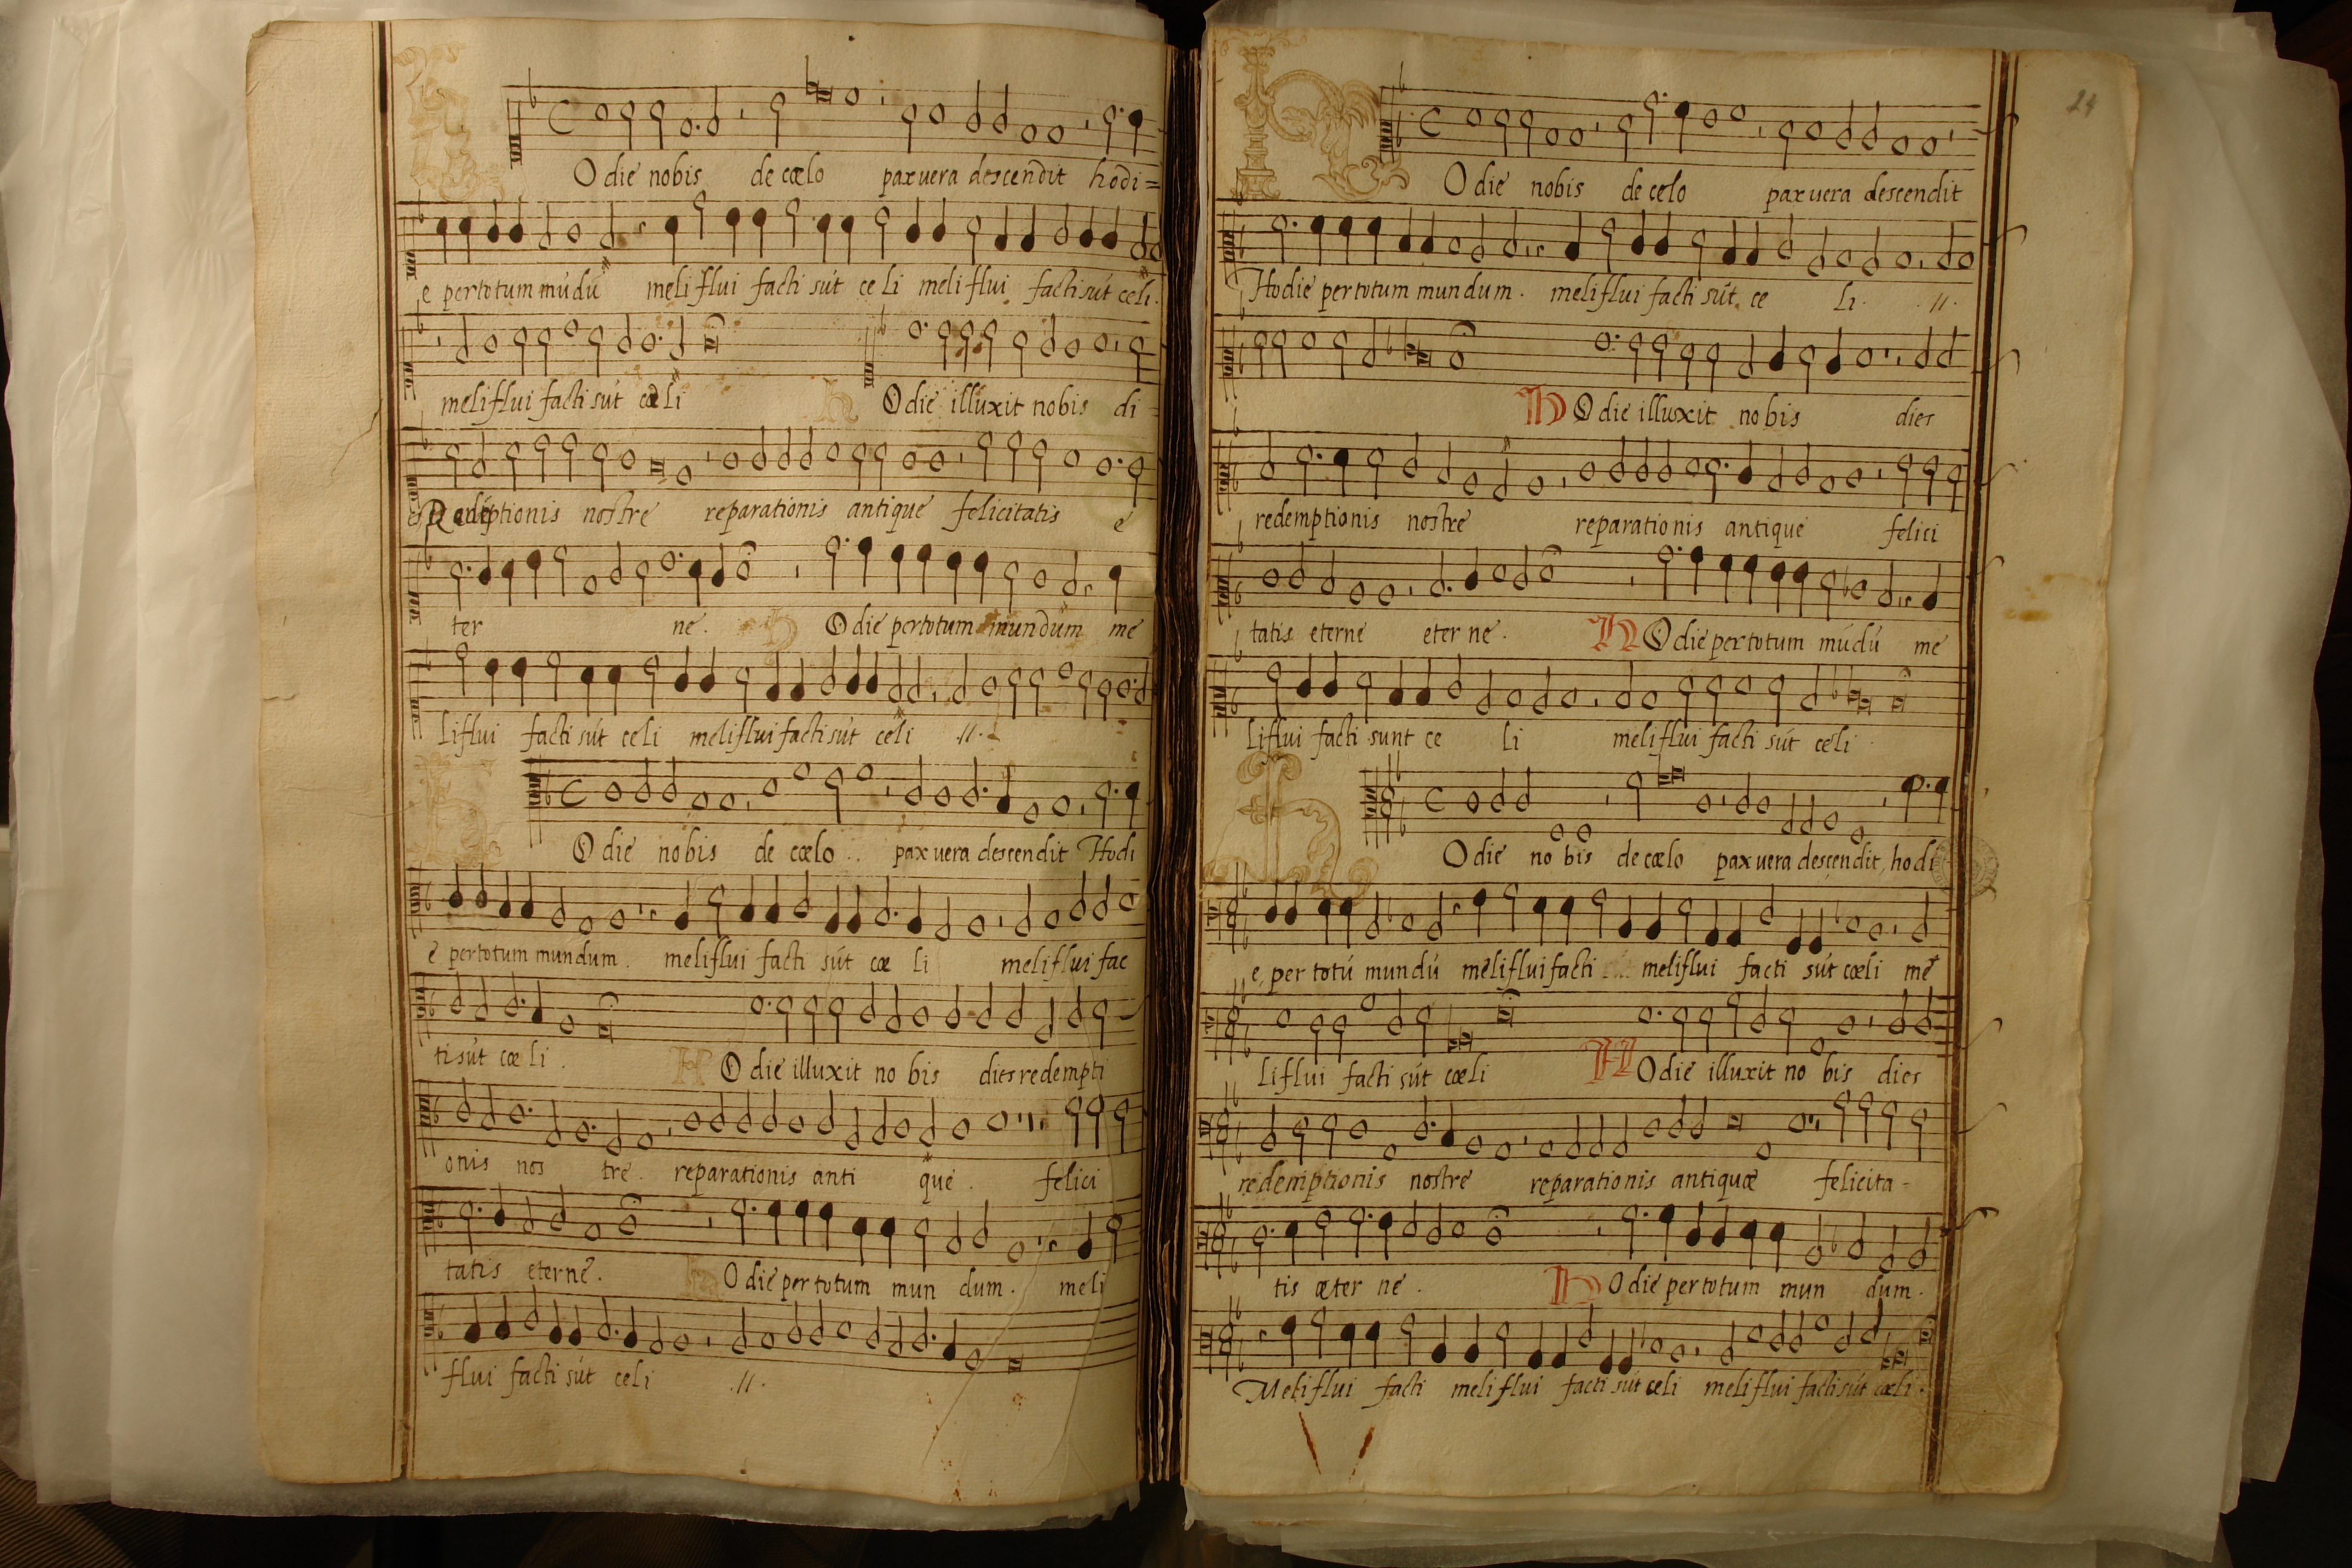 H Odie nobis de cœlo pax uera descendit hodi=
e per totum mūdū meliflui facti sūt celi meliflui facti sūt celi.
meliflui facti sūt cœli H Odie illuxit nobis di-
es Redēptionis nostre reparationis antique felicitatis e
ter ne. H Odie per totum mundum me
liflui facti sūt celi meliflui facti sūt celi .//.
H Odie nobis de cœlo .. pax uera descendit Hodi
e per totum mundum. meliflui facti sūt cœ li meliflui fac
ti sūt cœ li. H Odie illuxit no bis dies redempti
onis nos tre. reparationis anti que. felici
tatis eterne. H Odie per totum mun dum. meli
flui facti sūt celi .//.
24
H Odie nobis de celo pax uera descendit
Hodie per totum mundum. meliflui facti sūt ce li. .//.
H Odie illuxit no bis dies
redemptionis nostre reparationis antique felici
tatis eterne eter ne. H Odie per totum mūdū me
liflui facti sunt ce li meliflui facti sūt celi.
H Odie no bis de cœlo pax uera descendit, hodi
e per totū mundū meliflui facti meliflui facti sūt cœli me
liflui facti sūt cœli H Odie illuxit no bis dies
redemptionis nostre reparationis antiquæ felicita-
tis æter ne. H Odie per totum mun dum.
Meliflui facti meliflui facti sūt celi meliflui facti sūt cœli.